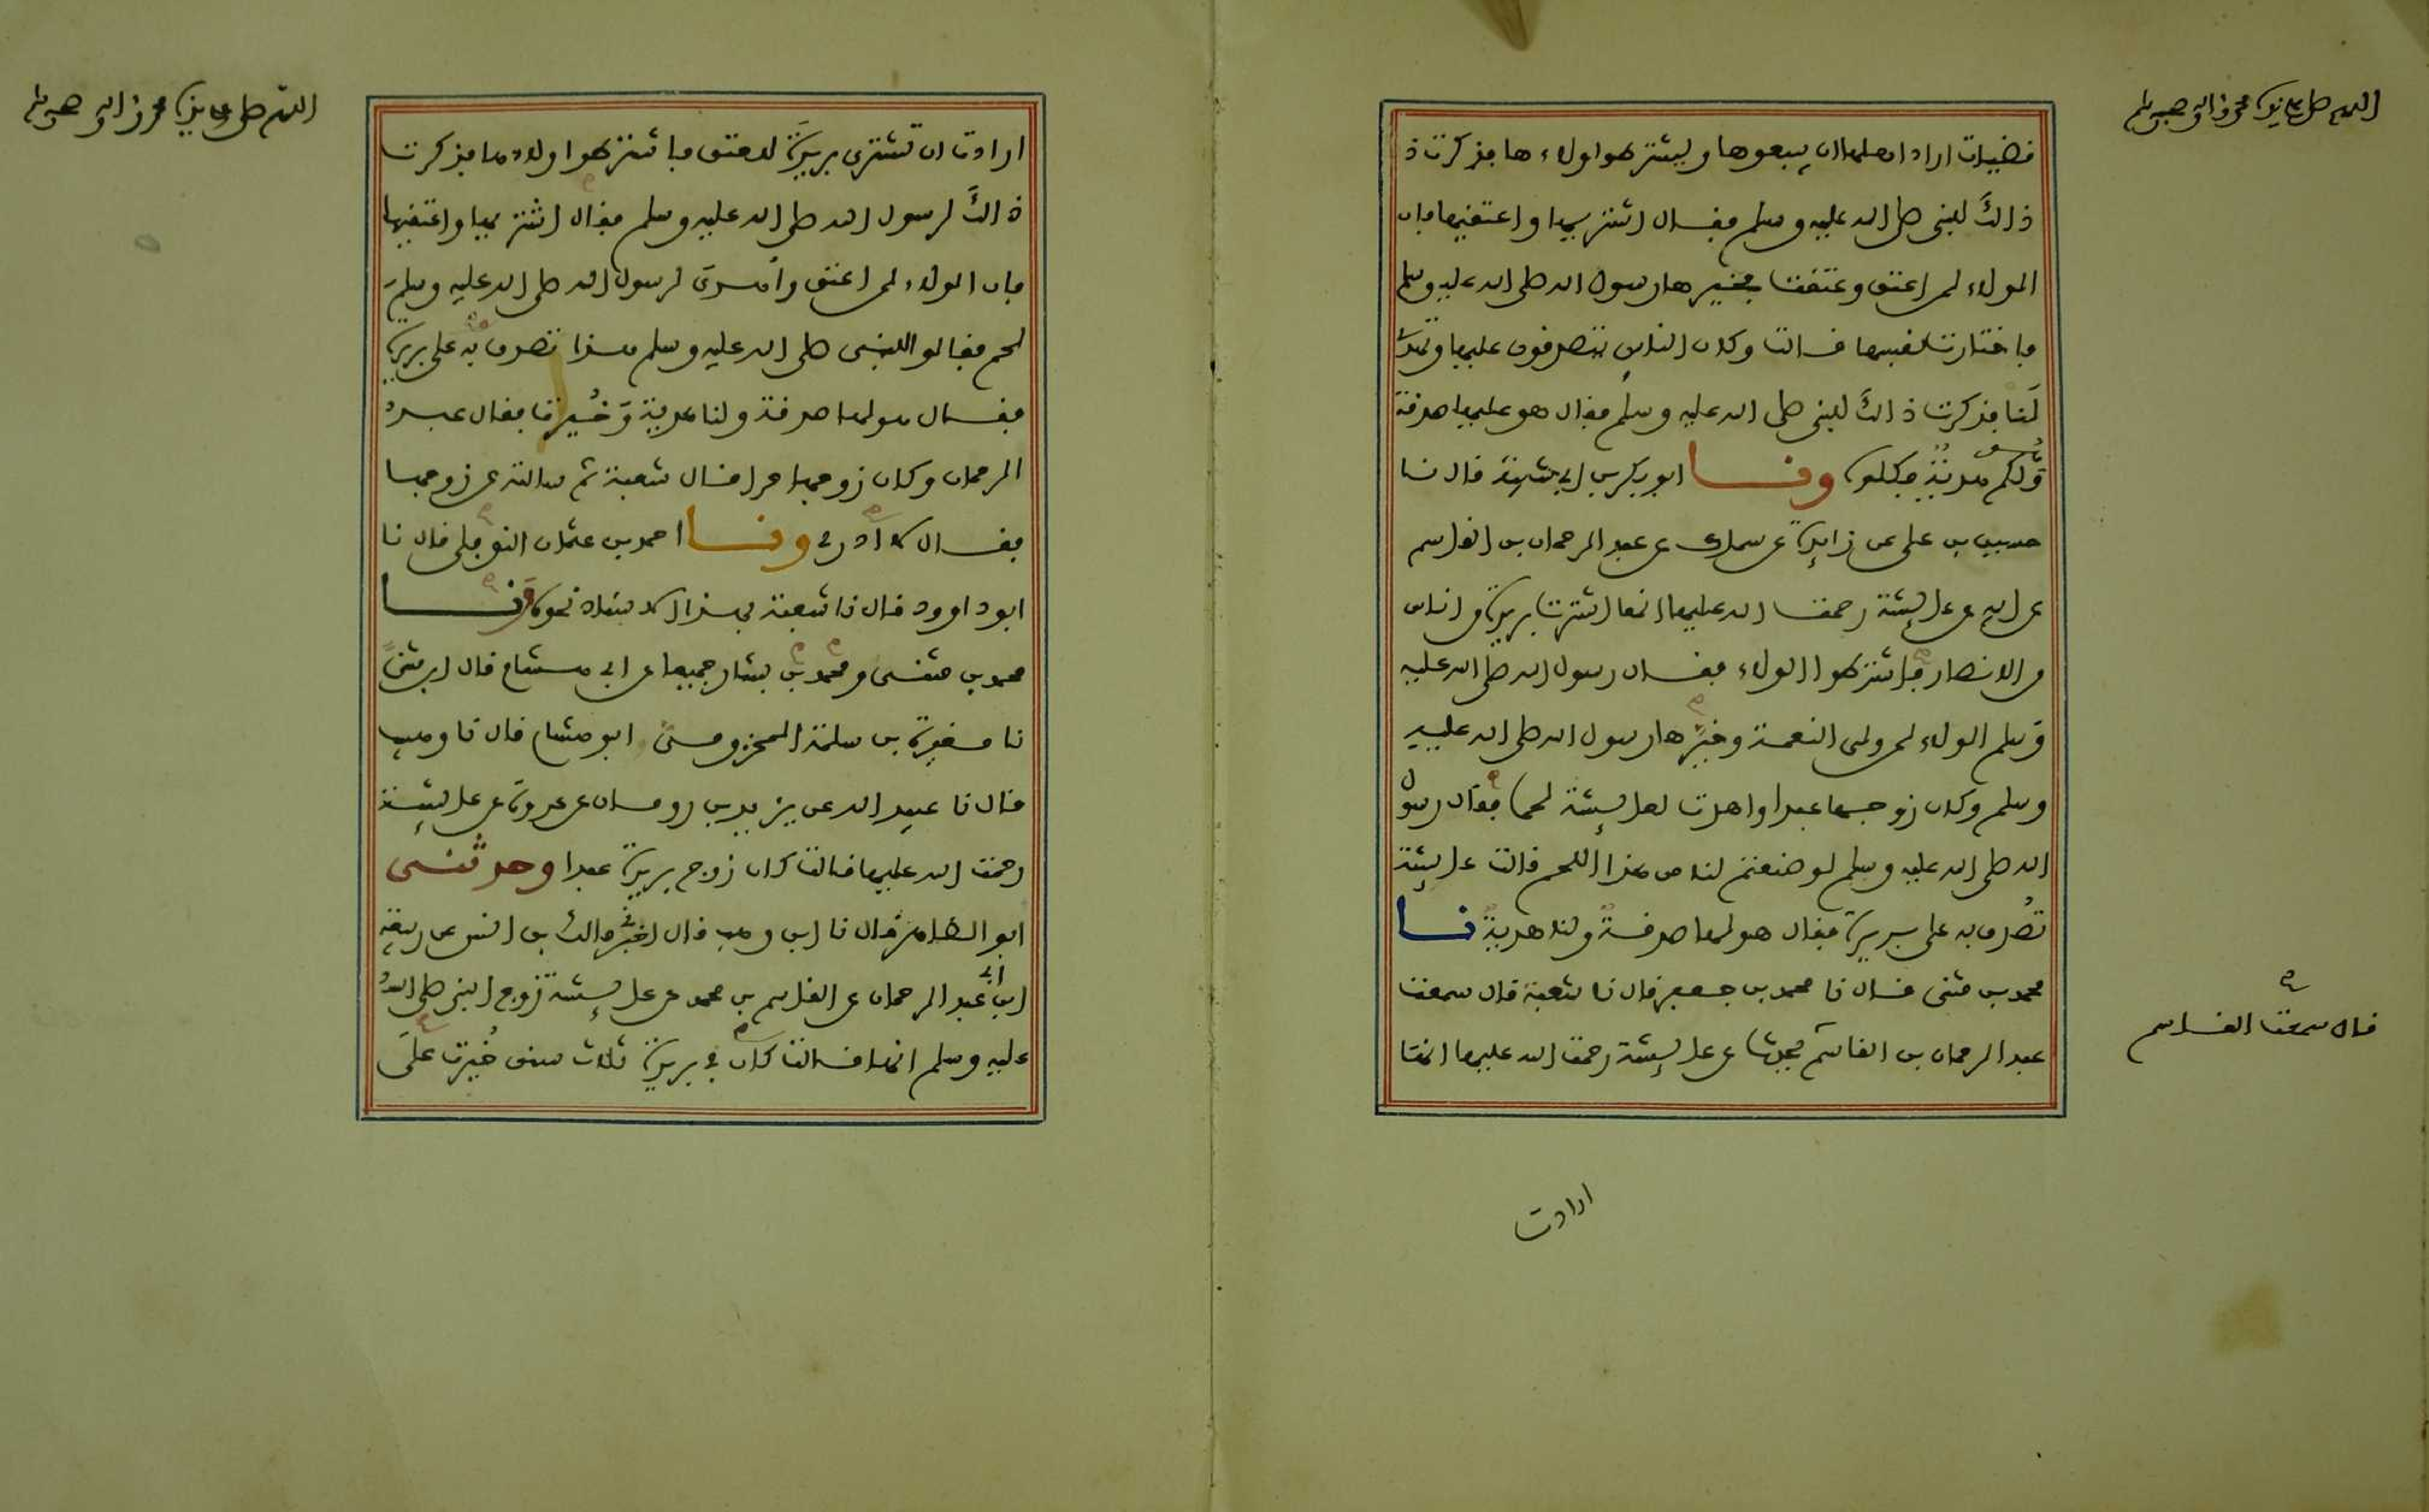 اللهم صل على سيدنا محمد واله وصحبه وسلم
قضيات اراد اهلها ان يبيعوها ويشترطوا ولاءها فذكرت ذ
ذالك للنبي صلى الله عليه وسلم فقال اشتريها واعتقيها فان
الولاء لمن اعتق وعتقت فخيرها رسول الله صلى الله عليه وسلم
فاختارت نفسها قالت وكان الناس يتصدقون عليها وتهدي
لنا فذكرت ذالك للنبي صلى الله عليه وسلم فقال هو عليها صدقة
ولكم هدية فكلوه ونا ابو بكر بن ابي شيبة قال نا
حسين بن علي عن زايدة عن سماك عن عبد الرحمان بن القاسم
عن ابيه عن عايشة رحمت الله عليها انها اشترت بريرة من اناس
من الانصار فاشترطوا الولاء فقال رسول الله صلى الله عليه
وسلم الولاء لمن ولي النعمة وخيرها رسول الله صلى الله عليه
وسلم وكان زوجها عبدا واهدت لعايشة لحما فقال رسول
الله صلى الله عليه وسلم لو صنعتم لنا من هذا اللحم قالت عايشة
تصدق به على بريرة فقال هو لها صدقة ولنا هدية نا
محمد بن مثنى قال نا محمد بن جعفر قال نا شعبة قال سمعت
عبد الرحمان بن القاسم يحدث عن عايشة رحمت الله عليها انها
قال سمعت القاسم
ارادت
اللهم صل على سيدنا محمد واله وصحبه وسلم
ارادت ان تشتري بريرة للعتق فاشترطوا ولاءها فذكرت
ذالك لرسول الله صلى الله عليه وسلم فقال اشتريها واعتقيها
فان الولاء لمن اعتق وأهدي لرسول الله صلى الله عليه وسلم
لحم فقالوا للنبي صلى الله عليه وسلم هذا تصدق به على بريرة
فقال هو لها صدقة ولنا هدية وخيرت فقال عبد
الرحمان وكان زوجها حرا قال شعبة ثم سالته عن زوجها
فقال لا ادري ونا احمد بن عثمان النوفلي قال نا
ابو داوود قال نا شعبة بهذا الاسناد نحوه ونا
محمد بن مثنى ومحمد بن بشار جميعا عن ابي هشام قال ابن مثنى
نا مغيرة بن سلمة المخزومي ابو هشام قال نا وهيب
قال نا عبيد الله عن يزيد بن رومان عن عروة عن عايشة
رحمت الله عليها قالت كان زوج بريرة عبدا وحدثني
ابو الطاهر قال نا ابن وهب قال اخبرني مالك بن انس عن ربيعة
ابن ابي عبد الرحمان عن القاسم بن محمد عن عايشة زوج النبي صلى الله
عليه وسلم انها قالت كان في بريرة ثلاث سنن خيرت على